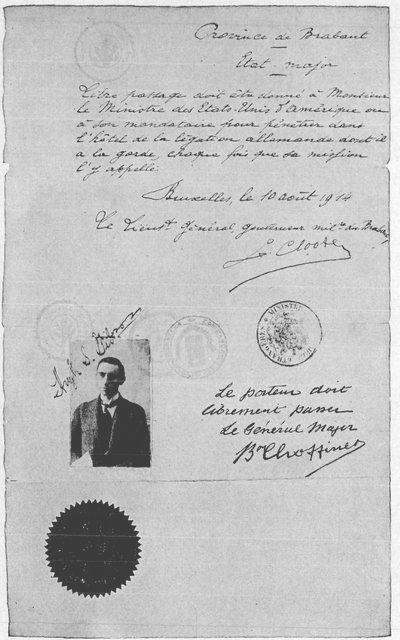 Province de Brabant
Etat major
Libre passage doit être donné à Monsieur
le Ministre des Etats-Unis d'Amérique ou
à son mandataire pour pénétrer dans
l'hôtel de la légation allemande dont il
a la garde, chaque fois que sa mission
l'y appelle.
Bruxelles, le 10 août 1914
Le Lieut. Général, gouverneur mil. du Brabant
G. Clooten
Hugh S. Gibson
MINISTRE
ETRANGÈRES
Le porteur doit
librement passer
Le Général Major
Bon Choffinet